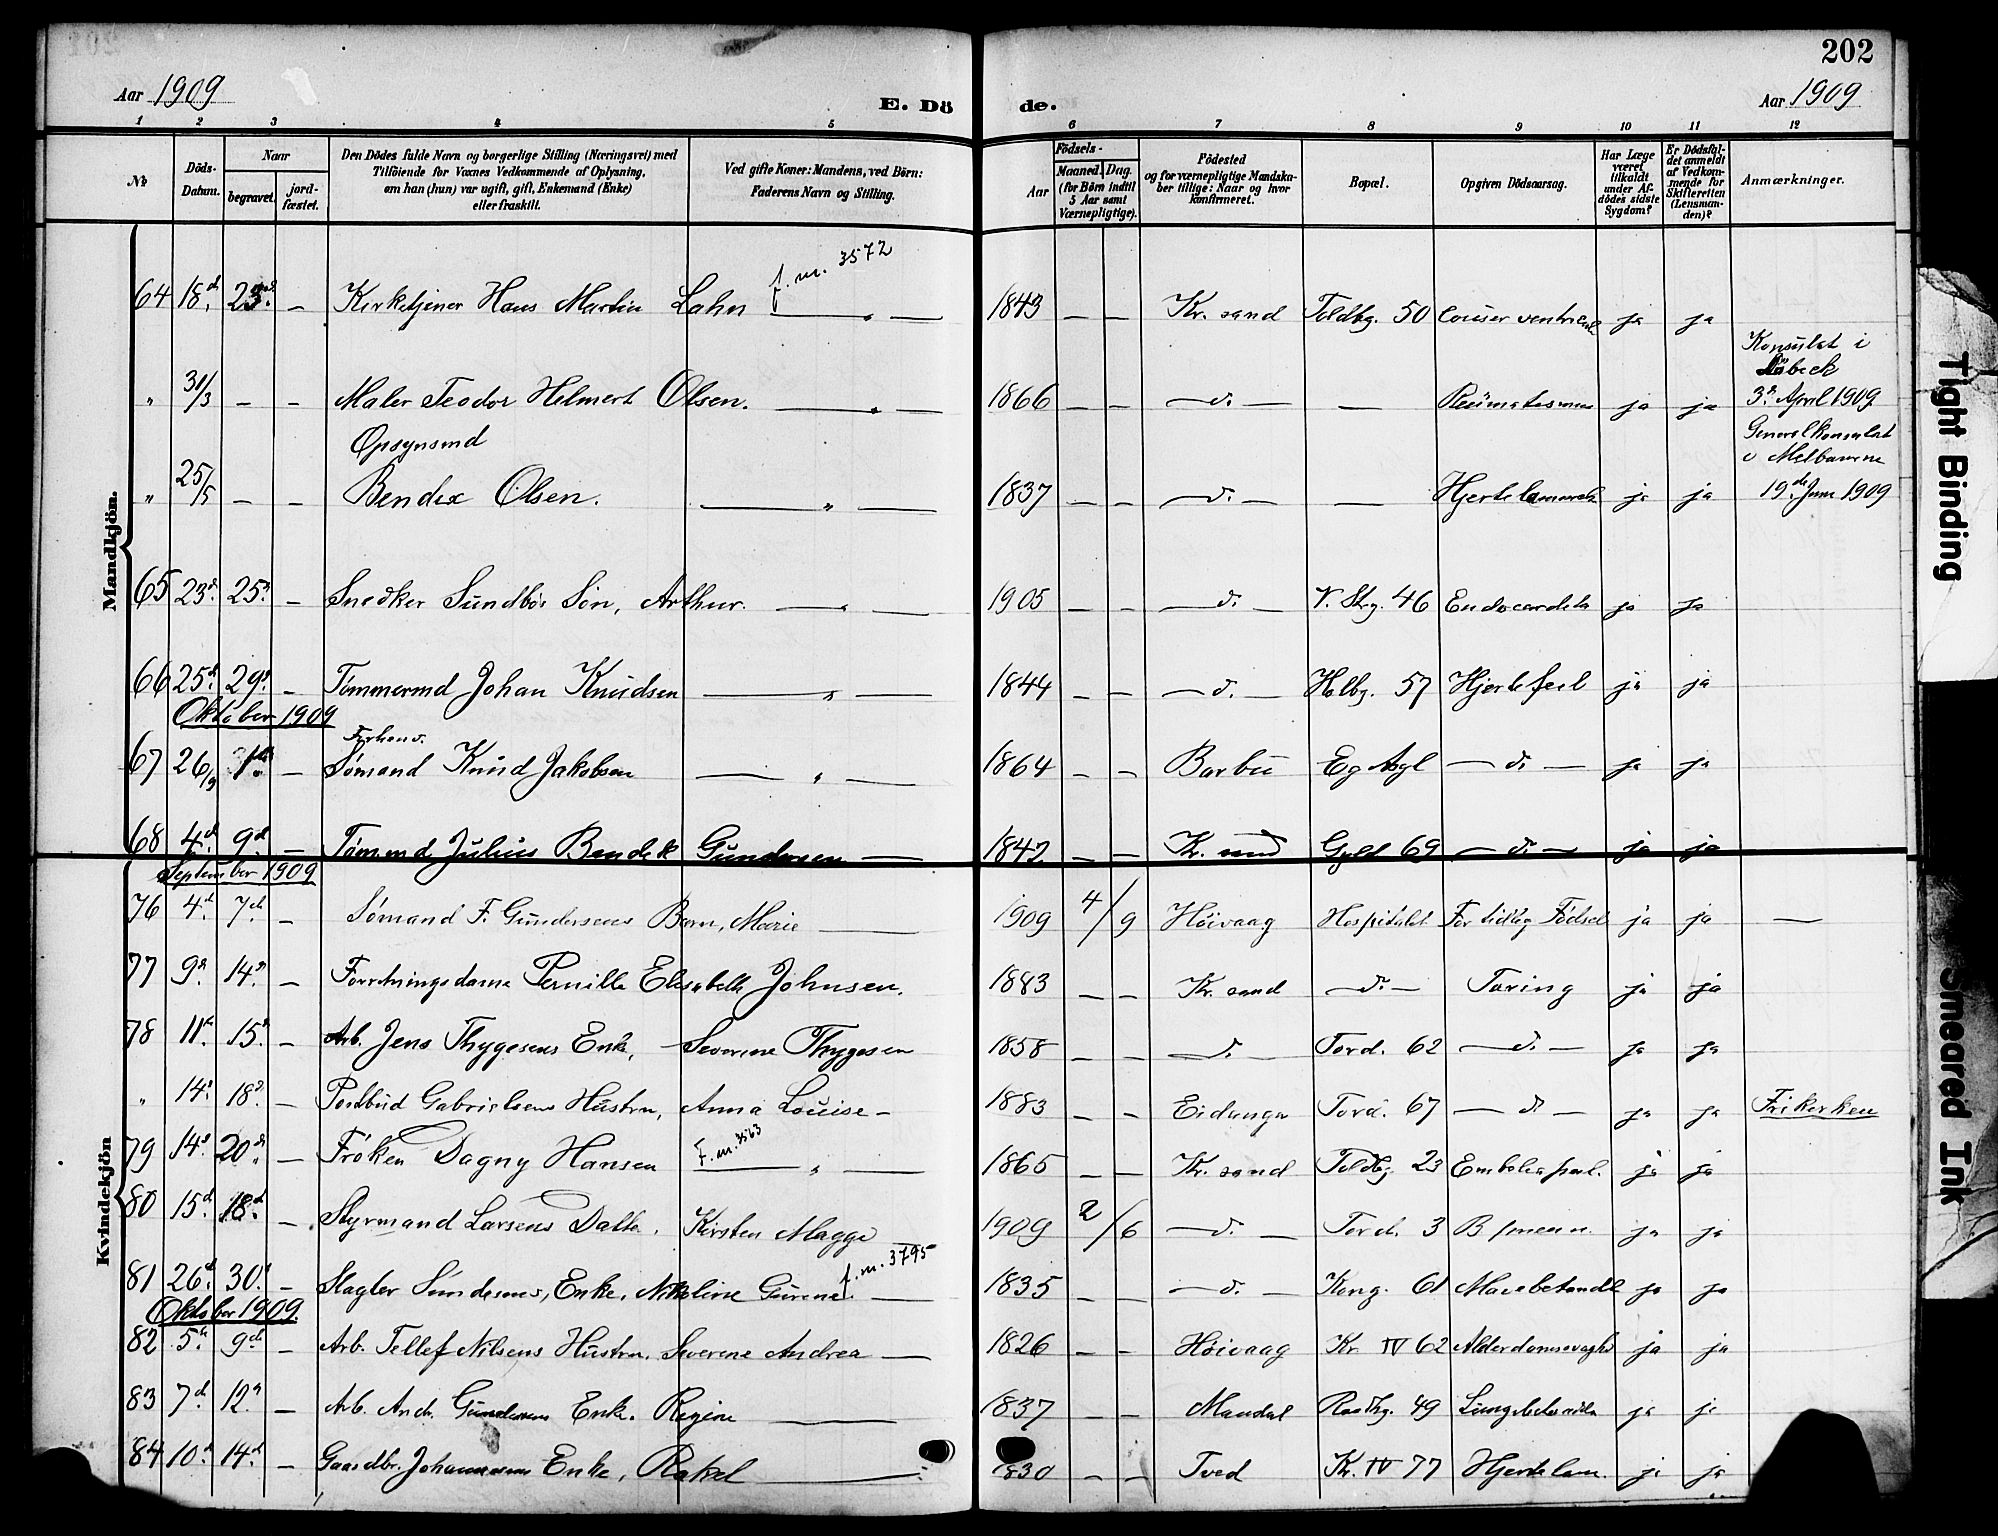 202
Aar 1909
E. Dö
de.
Aar 1909
1 2 3 4 5 6 7 8 9 10 11 12
Nr
Döds-Datum.
Naar
begravet.
jord-fæstet.
Den Dödes fulde Navn og borgerlige Stilling (Næringsvei) med
Tilföiende for Voxnes Vedkommende af Oplysning,
om han (hun) var ugift, gift, Enkemand (Enke)
eller fraskilt.
Ved gifte Koner: Mandens, ved Börn:
Faderens Navn og Stilling.
Födsels-
Aar
Maaned. Dag.
(for Börn indtil
5 Aar samt
Værnepligtige).
Födested
og for værnepligtige Mandska-
ber tillige: Naar og hvor
konfirmeret.
Bopæl.
Opgiven Dödsaarsag.
Har Læge
været
tilkaldt
under Af-
dödes sidste
Sygdom?
Er Dödsfal-
det anmeldt
af Vedkom-
mende for
Skifteretten
(Lensman-
den)?
Anmærkninger.
Mandkjön.
f. m. 3572
64 18d. 23d. — Kirketjener Hans Martin Lahn — " — 1843 — — Kr. sand Toldbg. 50 ja ja
Konsulat i
Lübeck
3d. April 1909
" 31/3 — — Maler Teodor Helmert Olsen. — " — 1866 — — — d. — — Reümatismus ja ja
Opsynsmd
Generalkonsulat
i Melbourne
19de Juni 1909
" 25/5 — — Bendix Olsen. — " — 1837 — — — d. — — ja ja
65 23d. 25d. — Snedker Sundbös Sön, Arthur. — " — 1905 — — — d. — V. Strg. 46 ja ja
66 25d. 29d. — Tömmermd Johan Knudsen — " — 1844 — — — d. — Holbg. 57 Hjertefeil ja ja
Oktober 1909
Forhenv.
67 26/9 1ste — Sömand Knud Jakobsen — " — 1864 — — Barbu Eg Asyl — d. — ja ja
68 4d. 9d. — Tömmd Julius Bendik Gundersen — 1842 — — Kr. sand Gyld 69 — d. — ja ja
Kvindekjön
September 1909
76 4d. 7d. — Sömand F. Gundersens Barn, Marie — 1909 4/9 Höivaag Hospitalet For tidlig Födsel ja ja —
77 9d. 14d. — Forretningsdame Pernille Elisabeth Johnsen. 1883 — — Kr. sand — d. — Tæring ja ja
78 11te. 15d. — Arb. Jens Thygesens Enke, Severine Thygesen 1858 — — — d. — Tord. 62 — d. — ja ja
" 14d. 18d. — Postbud Gabrielsens Hustru, Anna Louise — 1883 — — Eidanger Tord. 67 — d. — ja ja Frikirken
79 14d. 20de. — Fröken Dagny Hansen F. m. 3563 — " — 1865 — — Kr. sand Toldbg 23 Embolia pul. ja ja
80 15d. 18d. — Styrmand Larsens Datter, Kirsten Magge 1909 2/6 — d. — Tord. 3 ja ja
f. m. 3795
81 26d. 30d. — Slagter Enke, Nikoline Gurine. — 1835 — — — d. — Kong. 61 ja ja
Oktober 1909.
82 5te. 9d. — Arb. Tellef Nilsens Hustru, Severine Andrea — 1826 — — Höivaag Kr. IV 62 ja ja
83 7d. 12d. — Arb. Andr. Gundersens Enke. Regine — 1837 — — Mandal 49 ja ja
84 10d. 14d. — Gaardbr. Johannesens Enke, Rakel — 1830 — — Tved Kr. IV 77 Hjertelam. ja ja
Tight Binding
Smeared Ink